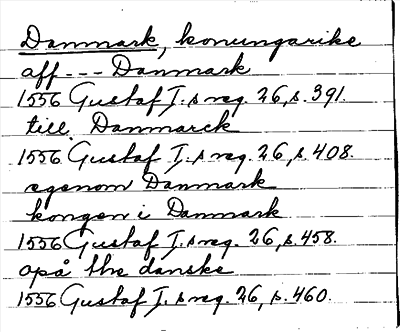 Danmark, konungarike
aff --- Danmark
1556 Gustaf I.s reg. 26, s. 391.
till Danmarck
1556 Gustaf I.s reg. 26, s. 408.
egenom Danmark
kongen i Danmark
1556 Gustaf I.s reg. 26, s. 458.
opå the danske
1556 Gustaf I.s reg. 26, s. 460.